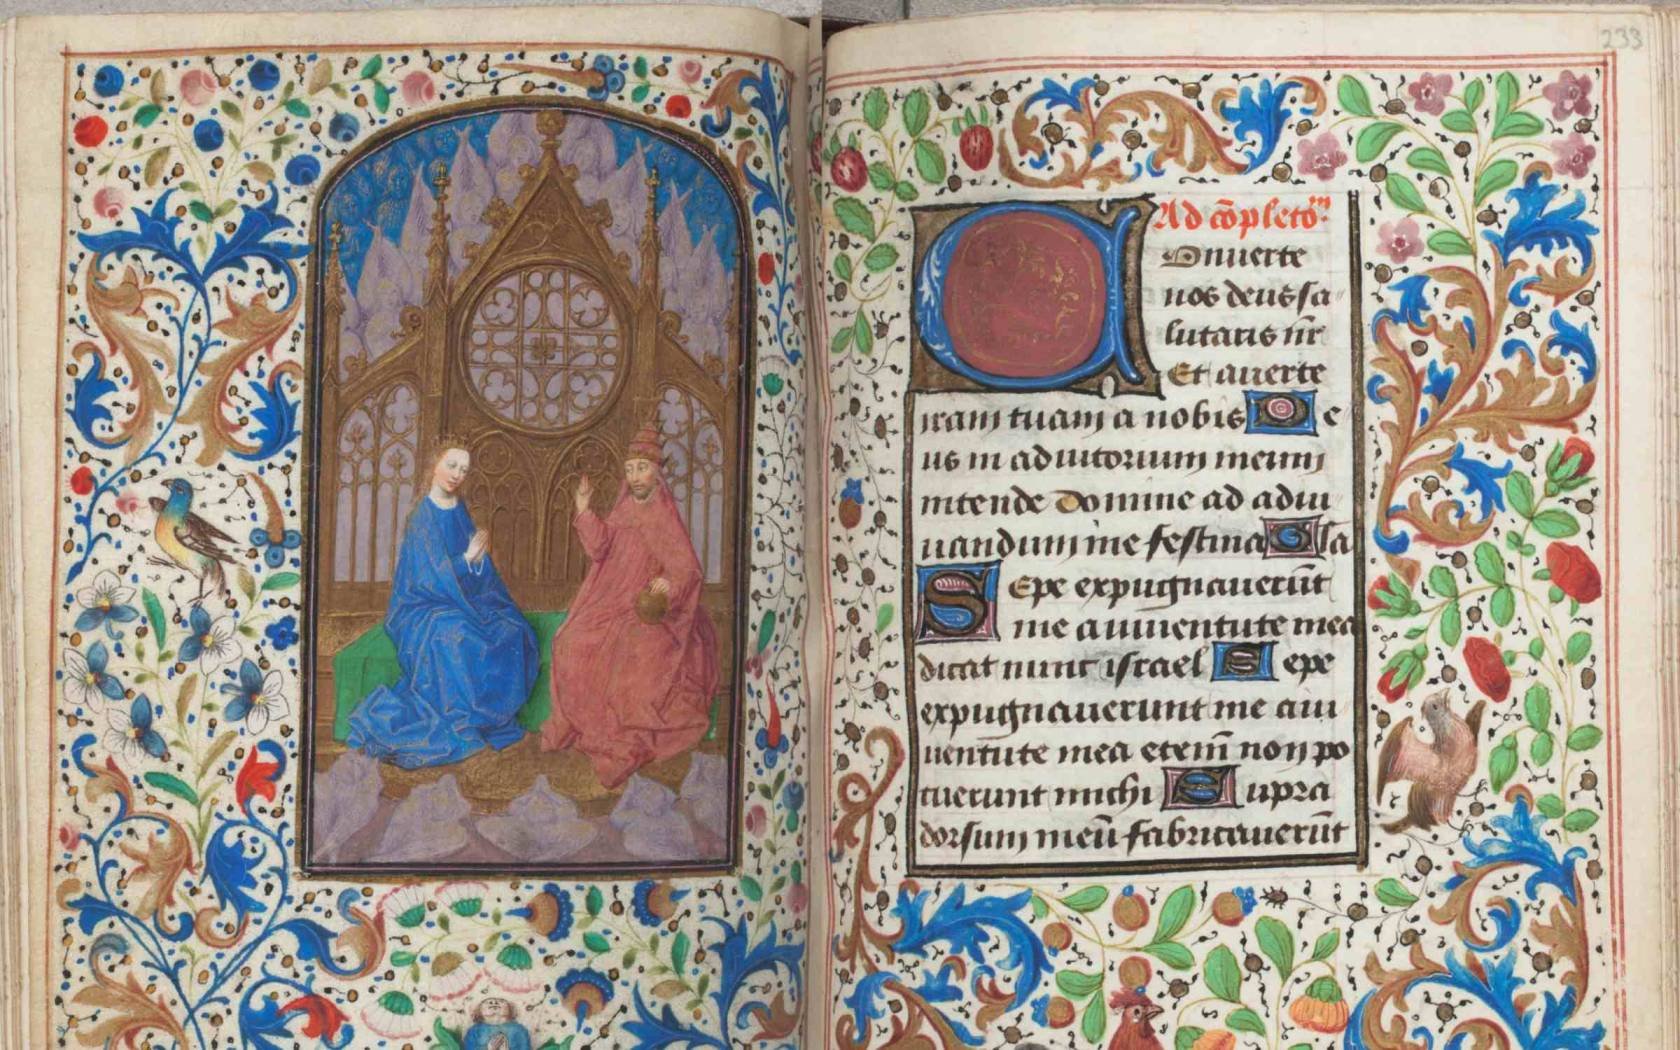 233
Ad cōpletoꝝ
Onuerte
nos deus sa
lutaris nr̄
Et auerte
iram tuam a nobis De
us in adiutorium meum
intende Domine ad adiu
uandum me festina Gla
Sepe expugnauerūt
me a iuuentute mea
dicat nunc israel Sepe
expugnauerunt me a iu
uentute mea etem̄ non po
tuerunt michi Supra
dorsum meū fabricauerūt